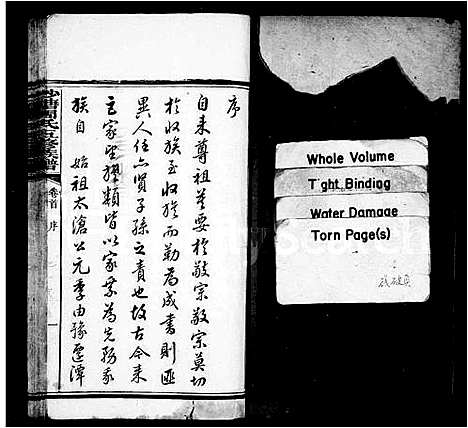 序
自来尊祖莫要於敬宗敬宗莫切
於收族至收族而勒為成書則匪
異人任六賢子孫之責也故古今来
巨家望族類皆以家乘為先務我
族自 始祖太滄公元季由豫遷潭
周氏五修族譜
卷首 序 一
Whole Volume
Tight Binding
Water Damage
Torn Page(s)